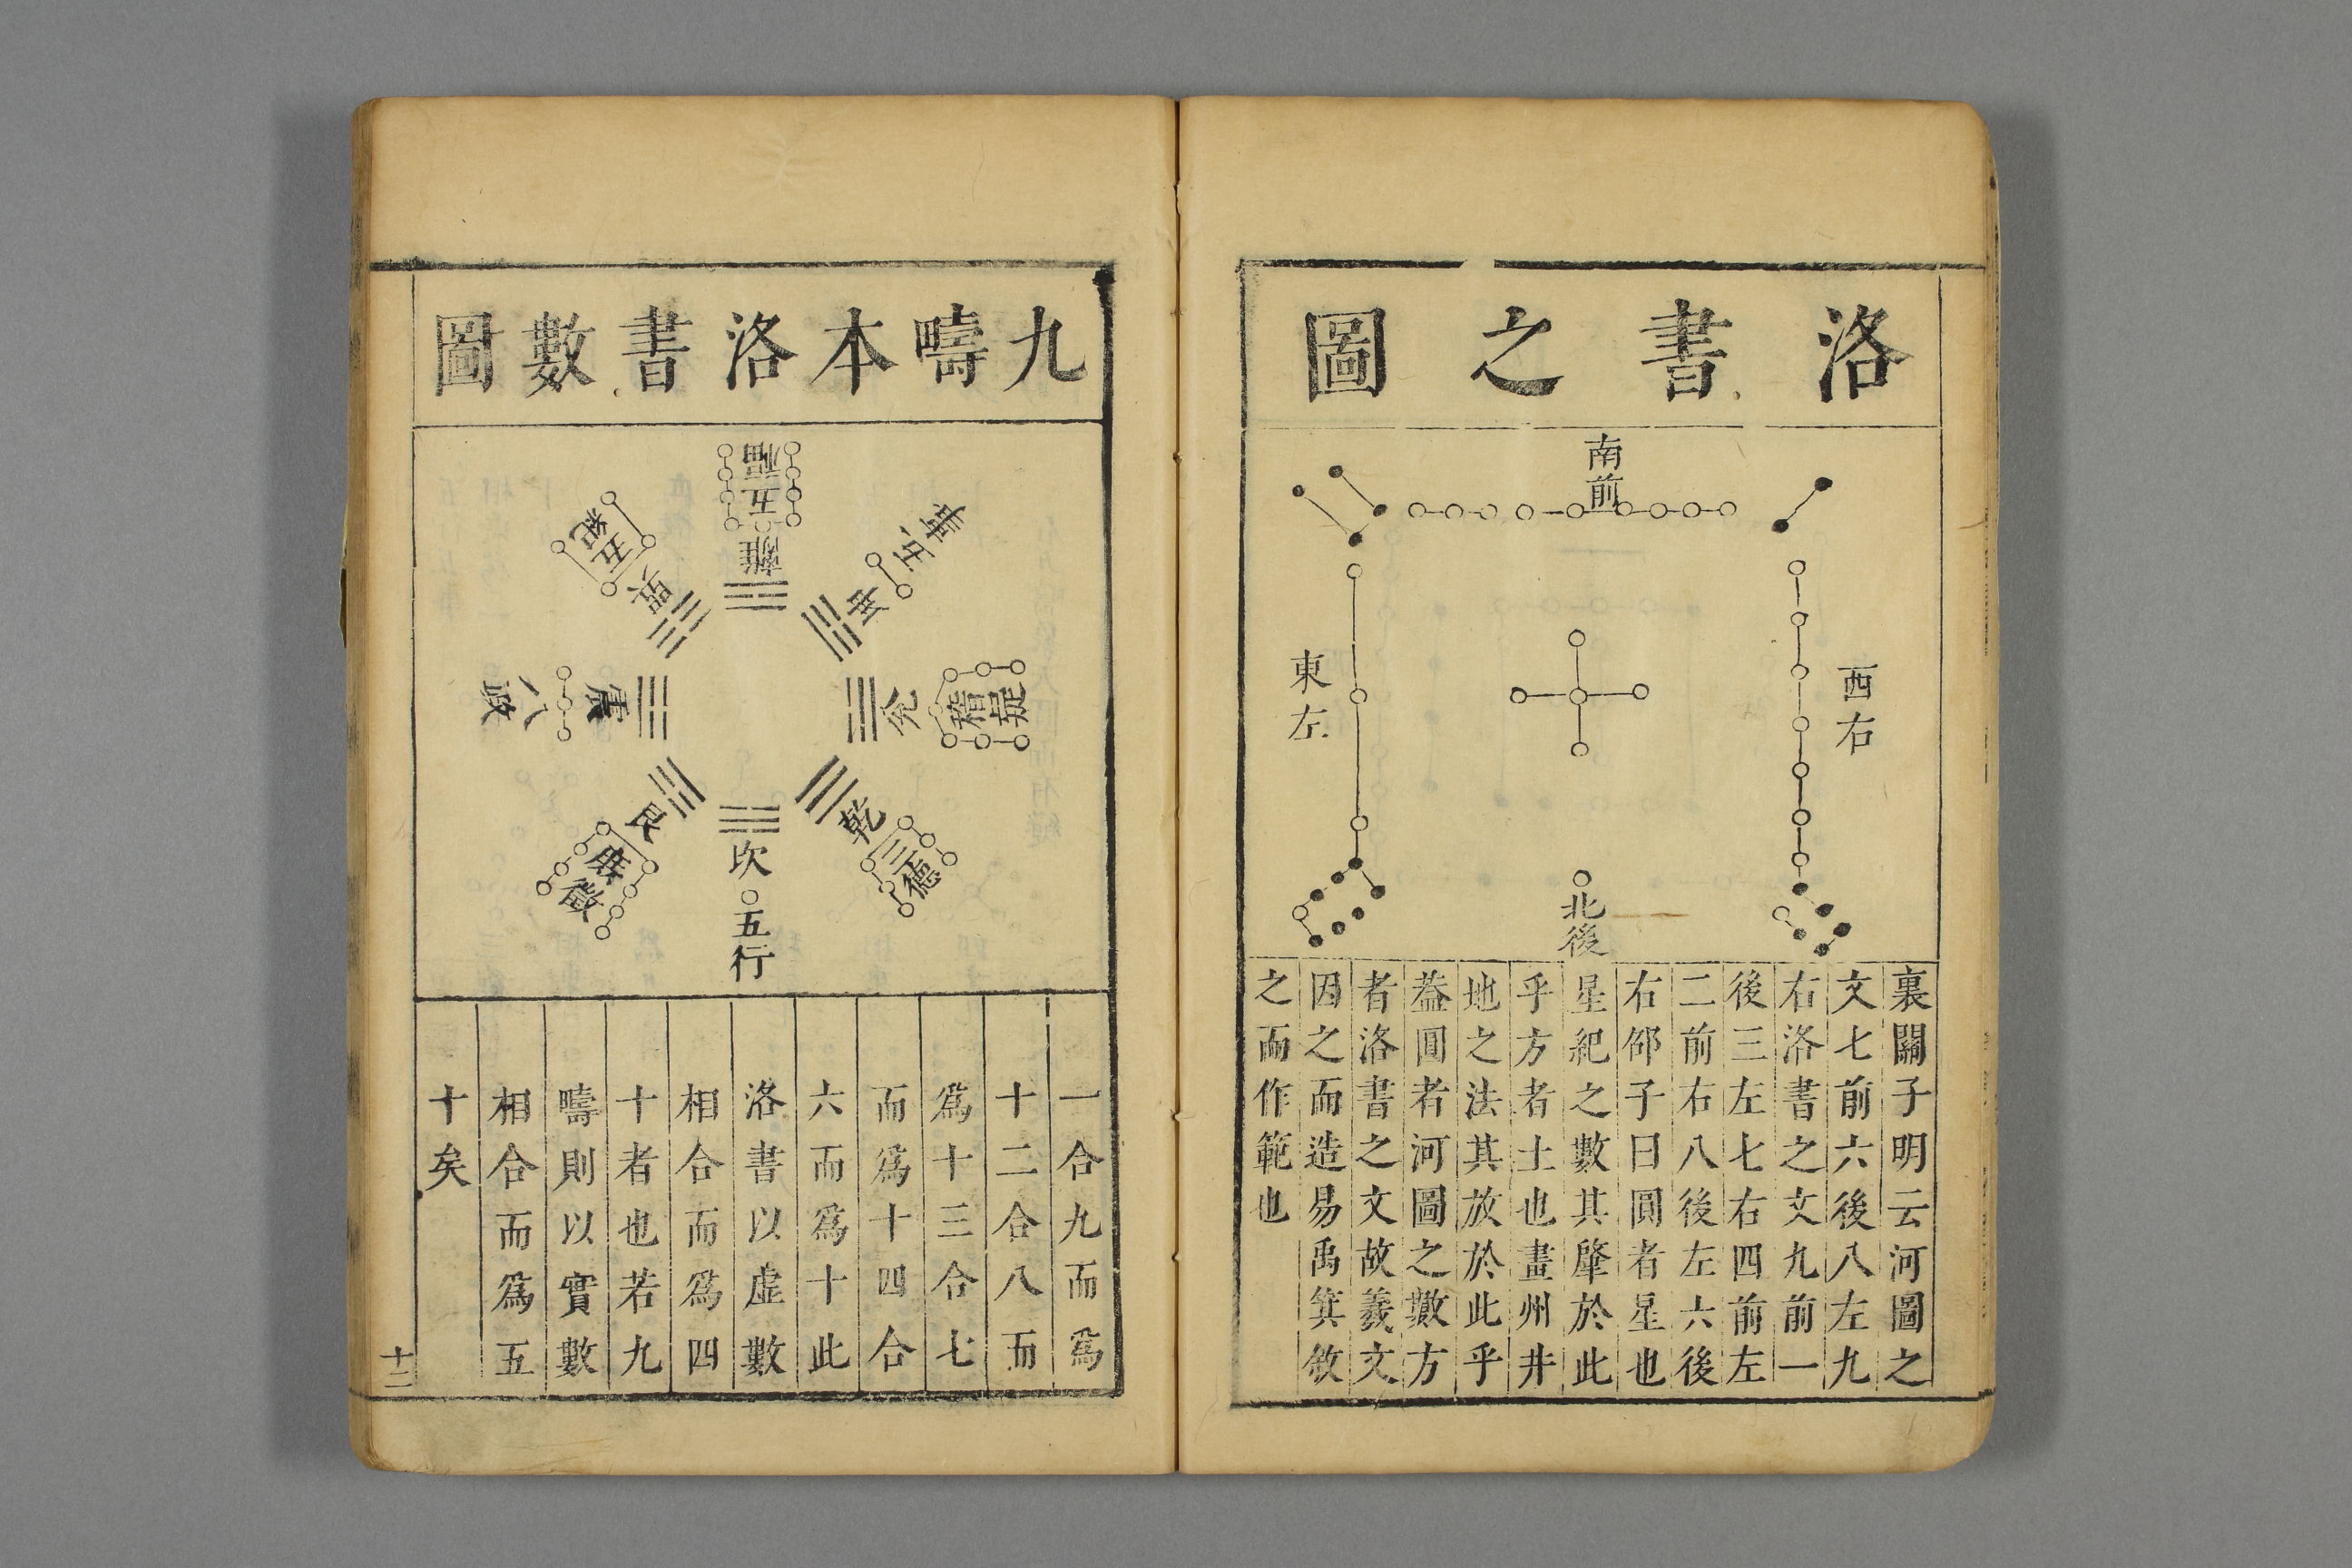 洛書之圖
南前
西右
東左
北後
裏關子明云河圖之
文七前六後八左九
右洛書之文九前一
後三左七右四前左
二前右八後左六後
右邵子曰圓者星也
星紀之數其肇於此
乎方者土也畫州井
地之法其放於此乎
葢圓者河圖之數方
者洛書之文故羲文
因之而造易禹箕敘
之而作範也
九疇本洛書數圖
離
五福
坤
五事
兌
稽疑
乾
三德
坎
五行
艮
庶徵
震
八政
巽
五紀
一合九而爲
十二合八而
爲十三合七
而爲十四合
六而爲十此
洛書以虛數
相合而爲四
十者也若九
疇則以實數
相合而爲五
十矣
十二